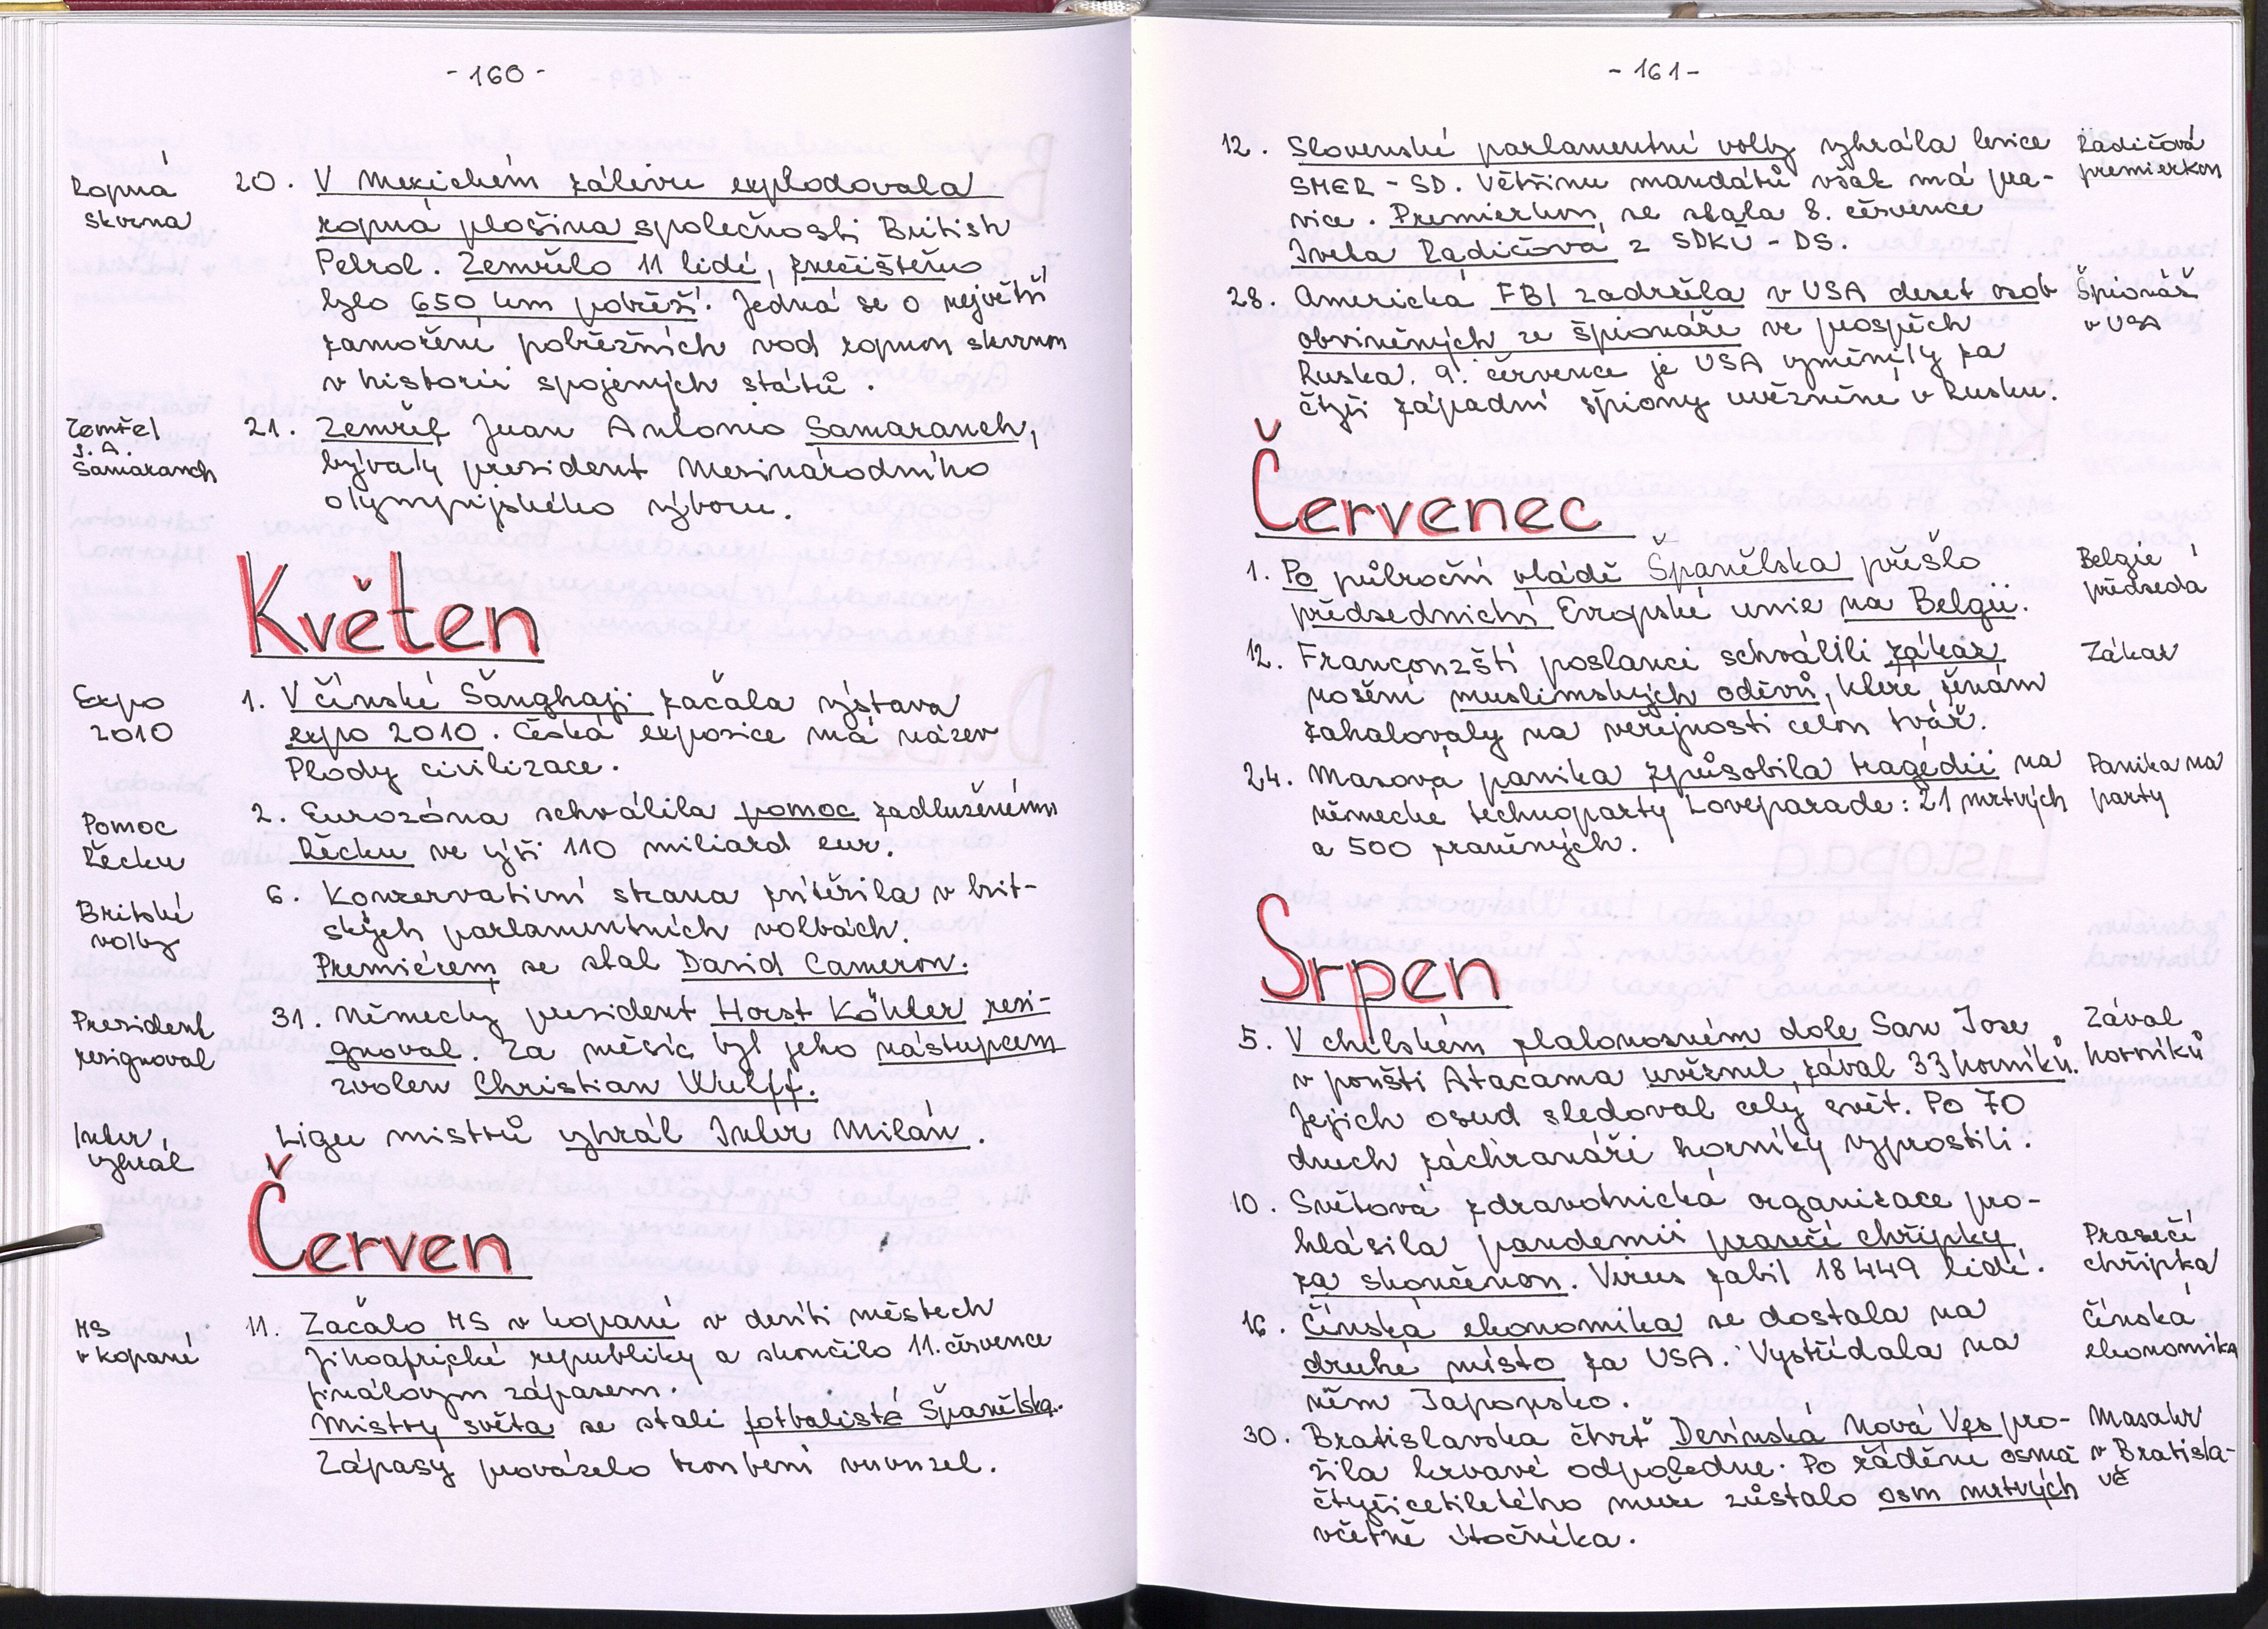 - 160 -
Ropná
skvrna
20. V Mexickém zálivu explodovala
ropná plošina společnosti British
Petrol. Zemřelo 11 lidí, znečištěno
bylo 650 km pobřeží. Jedná se o největší
zamoření pobřežních vod ropnou skvrnou
v historii spojených států.
Zemřel
J. A.
Samaranch
21. Zemřel Juan Antonio Samaranch,
bývalý president Mezinárodního
olympijského výboru.
Květen
Expo
2010
1. V čínské Šanghaji začala výstava
expo 2010. Česká expozice má název
Plody civilizace.
Pomoc
Řecku
2. Eurozóna schválila pomoc zadluženému
Řecku ve výši 110 miliard eur.
Britské
volby
6. Konzervativní strana zvítězila v brit-
ských parlamentních volbách.
Premiérem se stal David Cameron.
President
resignoval
31. Německý president Horst Köhler resi-
gnoval. Za měsíc byl jeho nástupcem
zvolen Christian Wulff.
Inter
vyhrál
Ligu mistrů vyhrál Inter Milán.
Červen
MS
v kopané
11. Začalo MS v kopané v deseti městech
Jihoafrické republiky a skončilo 11. července
finálovým zápasem.
Mistry světa se stali fotbalisté Španělska.
Zápasy provázelo troubení vuvuzel.
- 161 -
12. Slovenské parlamentní volby vyhrála levice
SMER - SD. Většinu mandátů však má pra-
vice. Premierkou se stala 8. července
Iveta Radičová z SDKÚ - DS.
Radičová
premierkou
28. Americká FBI zadržela v USA deset osob
obviněných ze špionáže ve prospěch
Ruska. 9. července je USA vyměnily za
čtyři západní špiony uvězněné v Rusku.
Špionáž
v USA
Červenec
1. Po půlroční vládě Španělska přešlo
předsednictví Evropské unie na Belgii.
Belgie
předsedá
12. Francouzští poslanci schválili zákaz
nošení muslimských oděvů, které ženám
zahalovaly na veřejnosti celou tvář.
Zákaz
24. Masová panika způsobila tragédii na
německé technoparty Loveparade: 21 mrtvých
a 500 zraněných.
Panika na
party
Srpen
5. V chilském zlatonosném dole San Jose
v poušti Atacama uvěznil zával 33 horníků.
Jejich osud sledoval celý svět. Po 70
dnech záchranáři horníky vyprostili.
Zával
horníků
10. Světová zdravotnická organizace pro-
hlásila pandemii prasečí chřipky
za skončenou. Virus zabil 18 449 lidí.
Prasečí
chřipka
16. Čínská ekonomika se dostala na
druhé místo za USA. Vystřídala na
něm Japonsko.
čínská
ekonomika
30. Bratislavská čtvrť Devínská Nová Ves pro-
žila krvavé odpoledne. Po řádění osma
čtyřicetiletého muže zůstalo osm mrtvých
včetně útočníka.
Masakr
v Bratisla-
vě